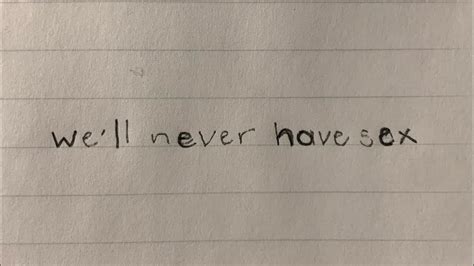 we'll never have sex